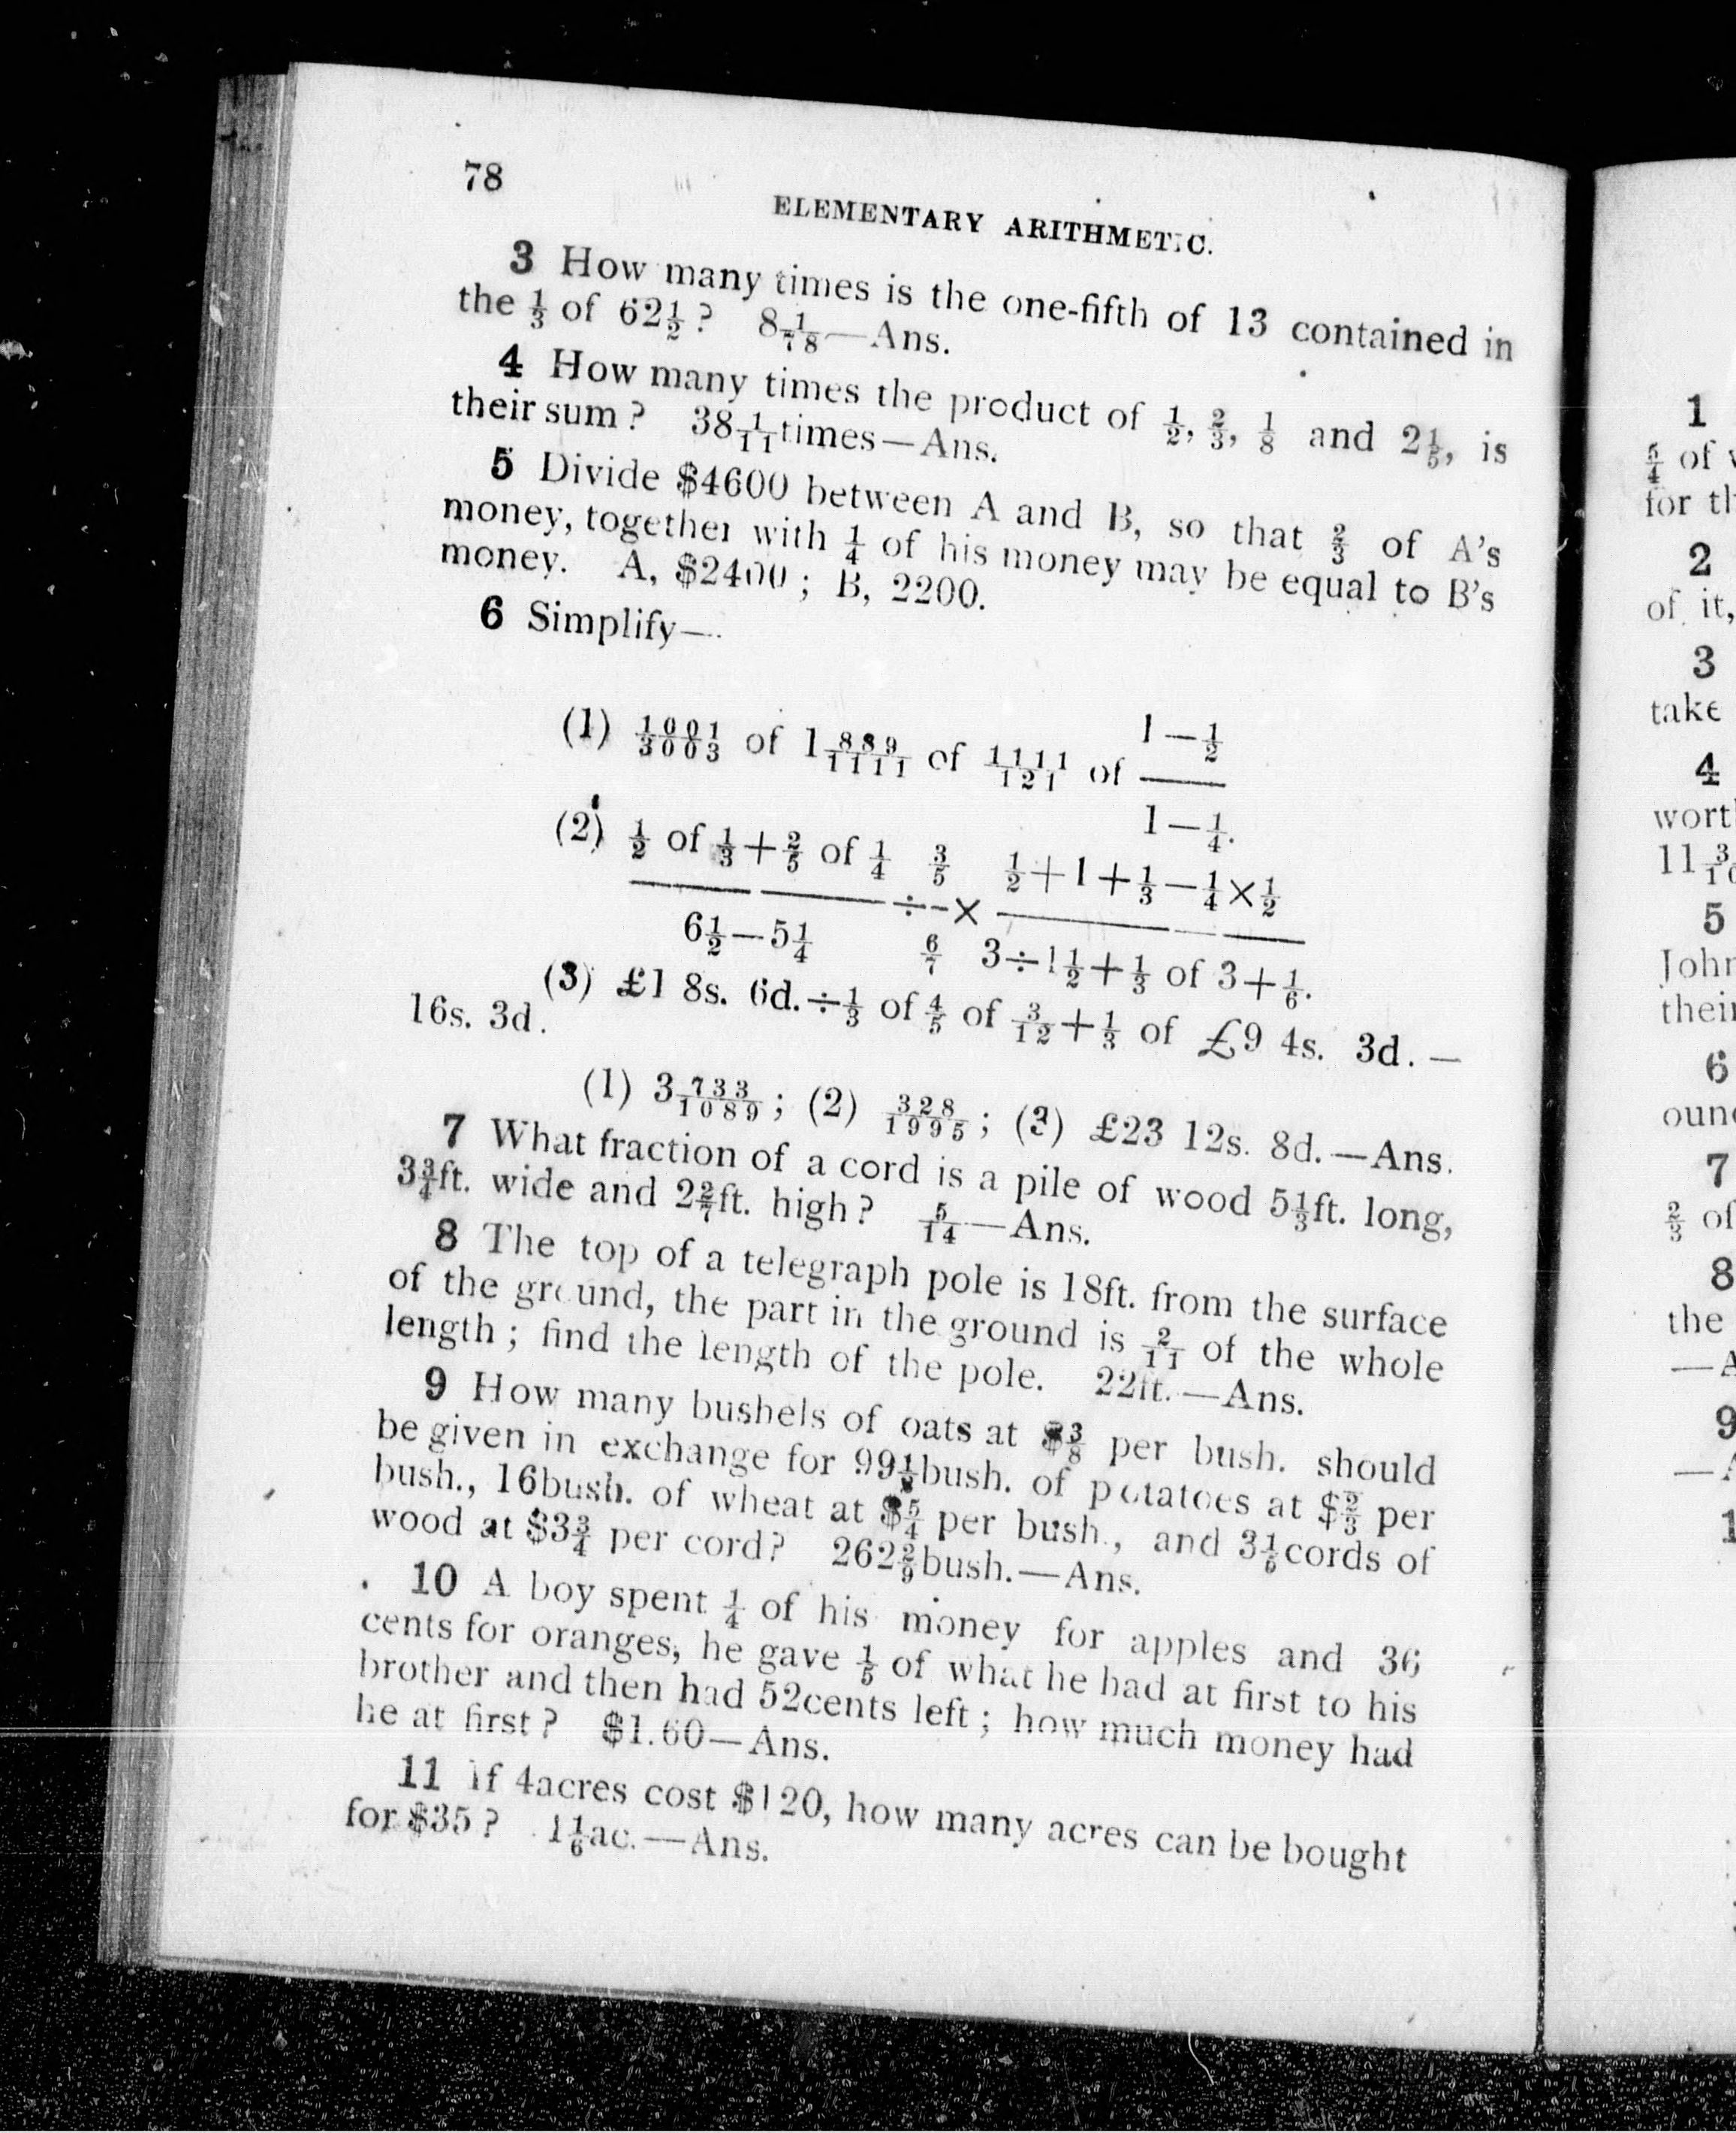 78
ELEMENTARY ARITHMETIC.
3 How many times is the one-fifth of 13 contained in
the 1/3 of 62 1/2 ? 8 1/78—Ans.
4 How many times the product of 1/2, 2/3, 1/8 and 2 1/5, is
their sum ? 38 1/11 times—Ans.
5 Divide $4600 between A and B, so that 2/3 of A's
money, together with 1/4 of his money may be equal to B's
money. A, $2400 ; B, 2200.
6 Simplify—
(1) 1001/3003 of 1 889/1111 of 1111/121 of (1—1/2)/(1—1/4).
(2) (1/2 of 1/3 + 2/5 of 1/4)/(6 1/2—5 1/4) ÷ (3/5)/(6/7) × (1/2+1+1/3—1/4×1/2)/(3÷1 1/2+1/3 of 3+1/6).
(3) £1 8s. 6d.÷1/3 of 4/5 of 3/12+1/3 of £9 4s. 3d.—
16s. 3d.
(1) 3 733/1089 ; (2) 328/1995 ; (3) £23 12s. 8d.—Ans.
7 What fraction of a cord is a pile of wood 5 1/3ft. long,
3 3/4ft. wide and 2 2/7ft. high ? 5/14—Ans.
8 The top of a telegraph pole is 18ft. from the surface
of the ground, the part in the ground is 2/11 of the whole
length ; find the length of the pole. 22ft.—Ans.
9 How many bushels of oats at $3/8 per bush. should
be given in exchange for 99 bush. of potatoes at $2/3 per
bush., 16bush. of wheat at $5/4 per bush., and 3 1/6cords of
wood at $3 3/4 per cord? 262 2/9bush.—Ans.
10 A boy spent 1/4 of his money for apples and 36
cents for oranges, he gave 1/5 of what he had at first to his
brother and then had 52cents left ; how much money had
he at first ? $1.60—Ans.
11 If 4acres cost $120, how many acres can be bought
for $35 ? 1 1/6ac.—Ans.
1
5/4 of
for
2
of it,
3
take
4
5
6
7
2/3 of
8
the
9